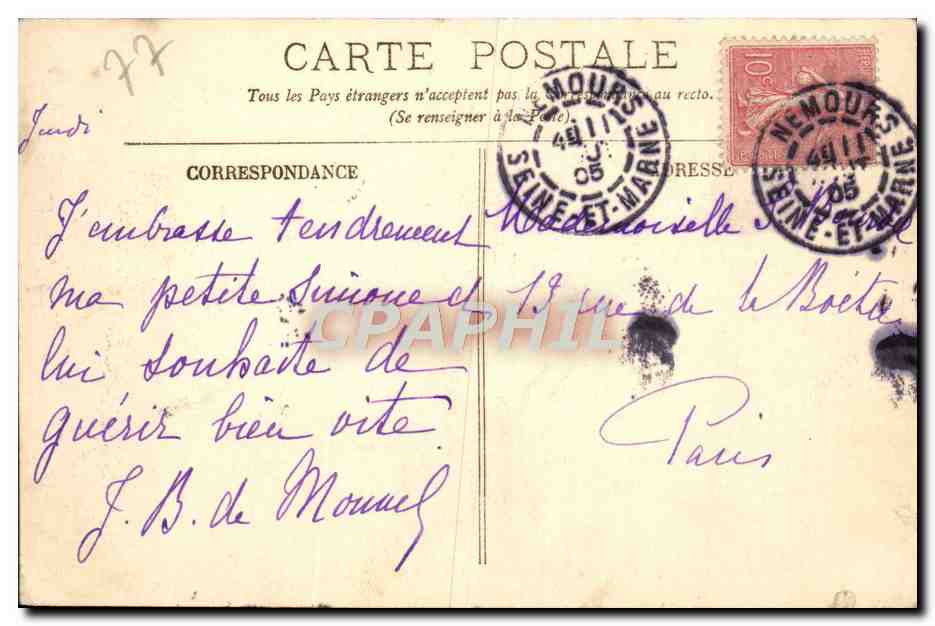 77
CARTE POSTALE
Tous les Pays étrangers n'acceptent pas la correspondance au recto.
(Se renseigner à la Poste).
Jeudi
CORRESPONDANCE
ADRESSE
J'embrasse tendrement
ma petite Simone et
lui souhaite de
guérir bien vite
J. B. de
Mademoiselle
13 rue de la Boëtie
Paris
10c
NEMOURS
11
05
SEINE-ET-MARNE
NEMOURS
11
05
SEINE-ET-MARNE
CPAPHIL